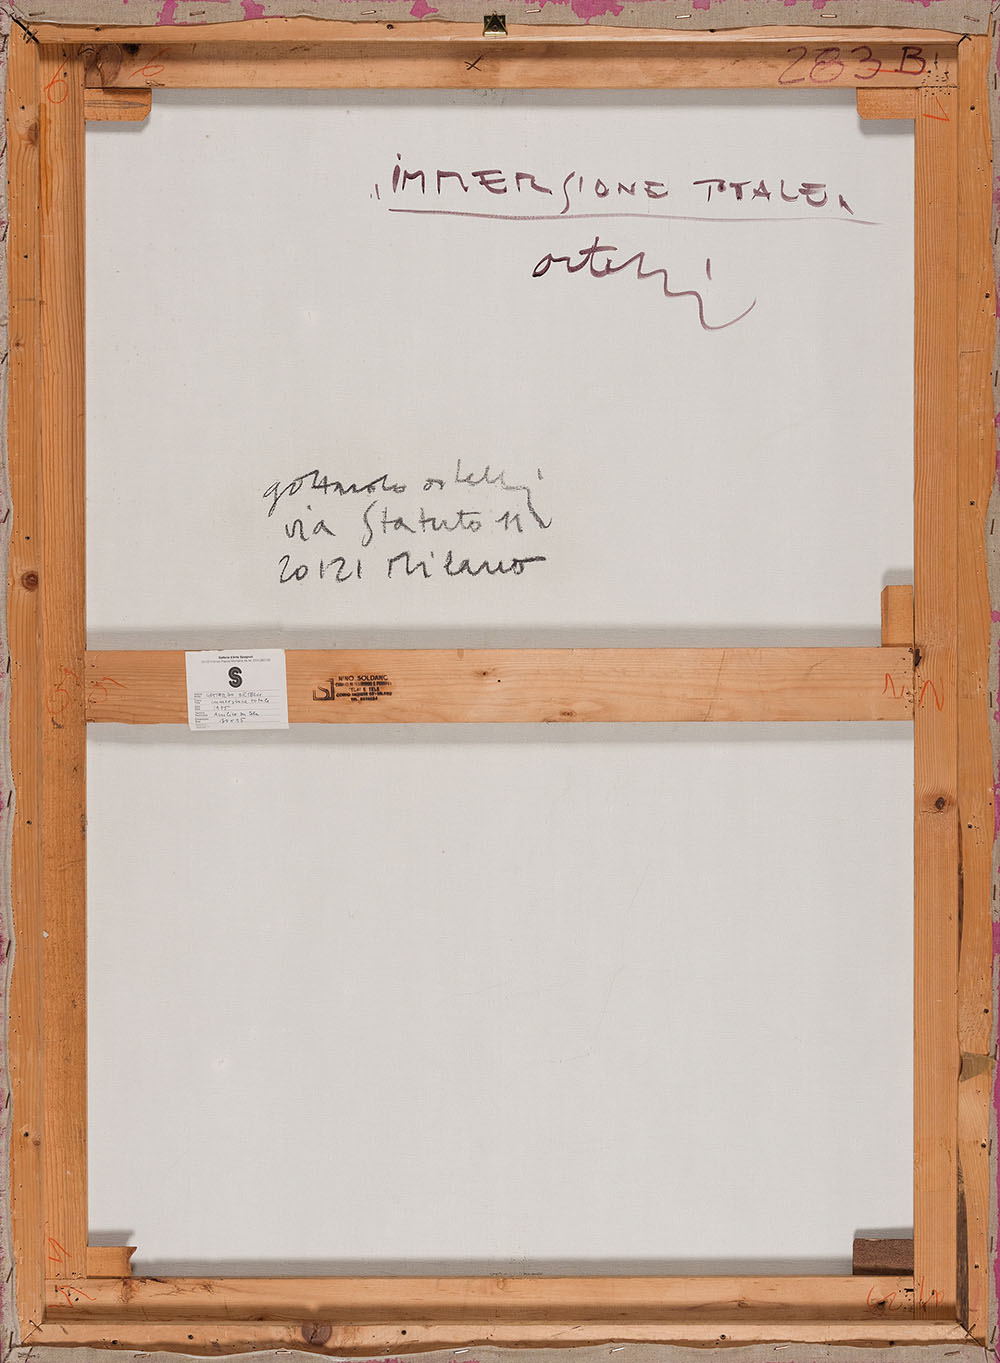 283 B
"IMMERSIONE TOTALE"
ortelli
gottardo ortelli
via Statuto 11
20121 Milano
Galleria d'Arte Spagnoli
S
GOTTARDO ORTELLI
immersione totale
1975
Acrilico su tela
NINO SOLDANO
TELAI E TELE